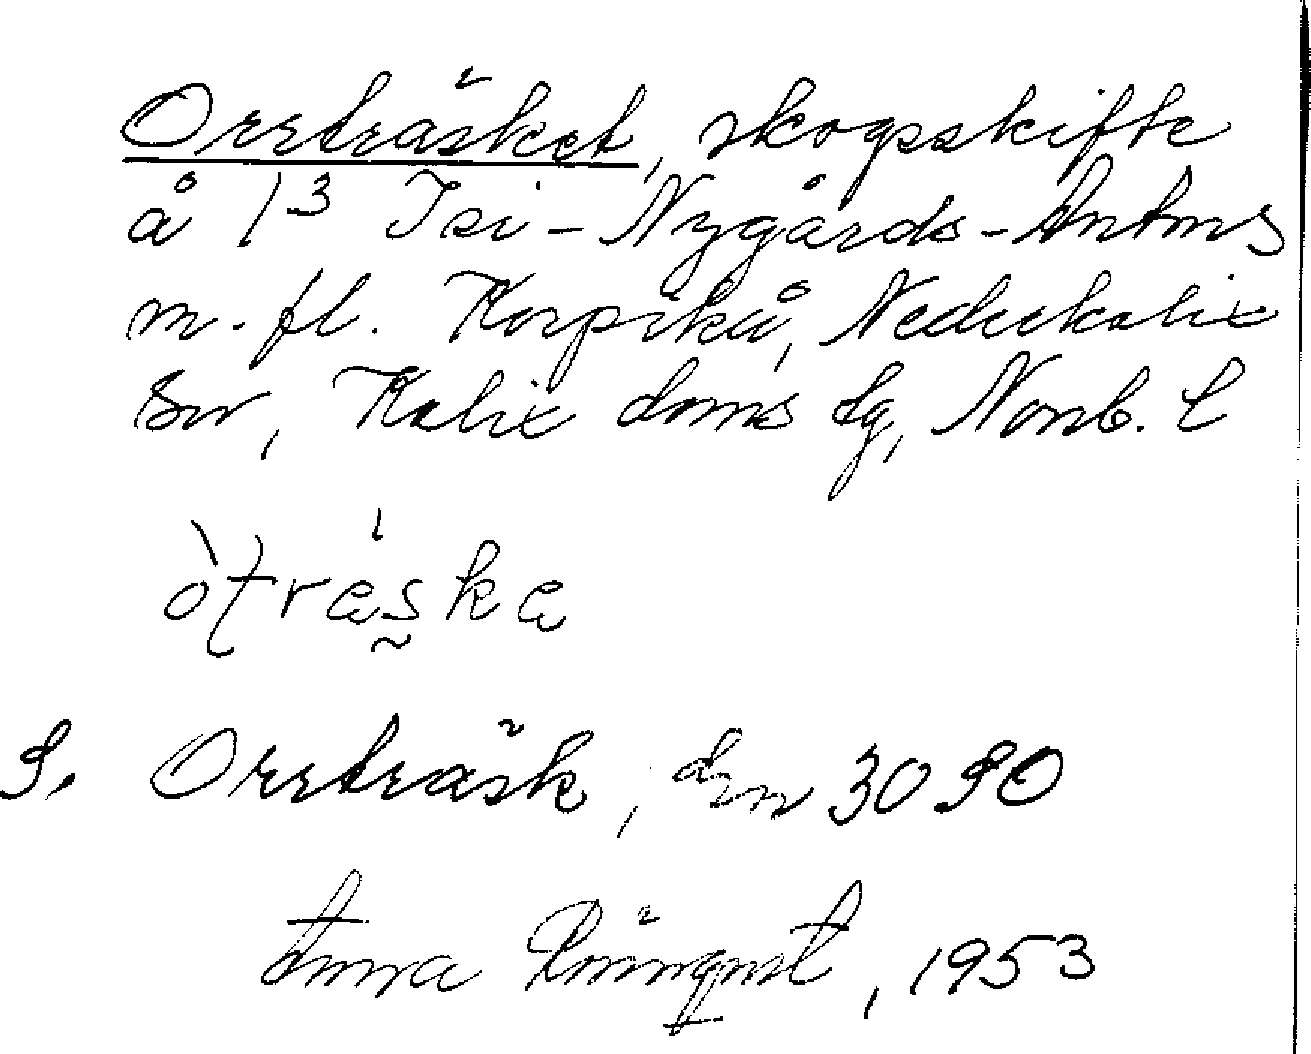 Orrträsket, skogsskifte
å 1³ Isi-Nygårds-Antons
m. fl. Korpikå, Nederkalix
sn, Kalix doms dg, Nonb. l
òtrǻs̰ka
S. Orrträsk, len 3090
Anna Rönnqvist, 1953